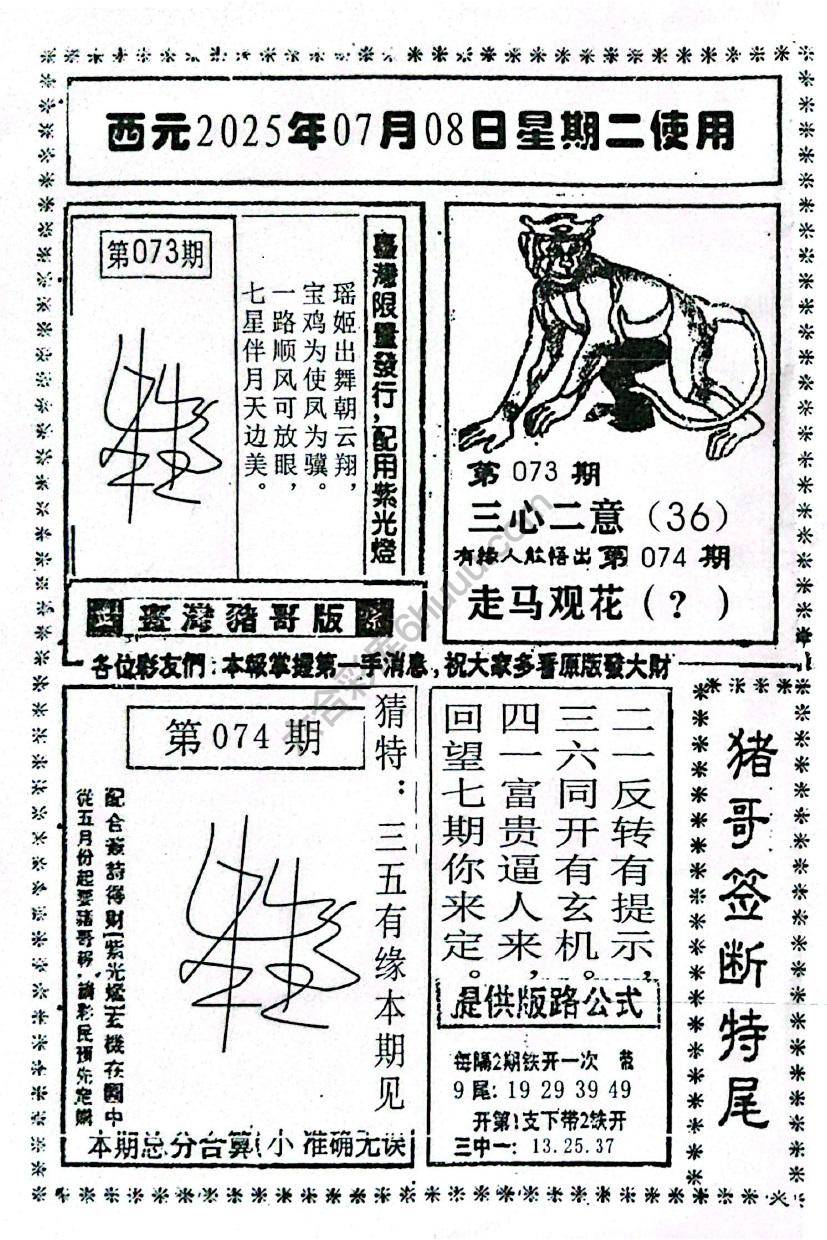 西元2025年07月08日星期二使用
第073期
瑶姬出舞朝云翔，
宝鸡为使凤为骥。
一路顺风可放眼，
七星伴月天边美。
臺灣限量發行，配用紫光燈
臺灣豬哥版
第 073 期
三心二意（36）
有緣人能悟出第 074 期
走马观花（？）
各位彩友們：本報掌握第一手消息，祝大家多看原版發大財
第 074 期
猜特：三五有缘本期见
配合簽詩得財（紫光燈）玄機在圖中
從五月份起要豬哥報，請彩民預先定購
本期总分合算（小 准确无误
二一反转有提示，
三六同开有玄机。
四一富贵逼人来，
回望七期你来定。
提供版路公式
每隔2期铁开一次
9尾：19 29 39 49
开第1支下带2铁开
三中一：13.25.37
猪哥签断特尾
六合彩库6huuu.com